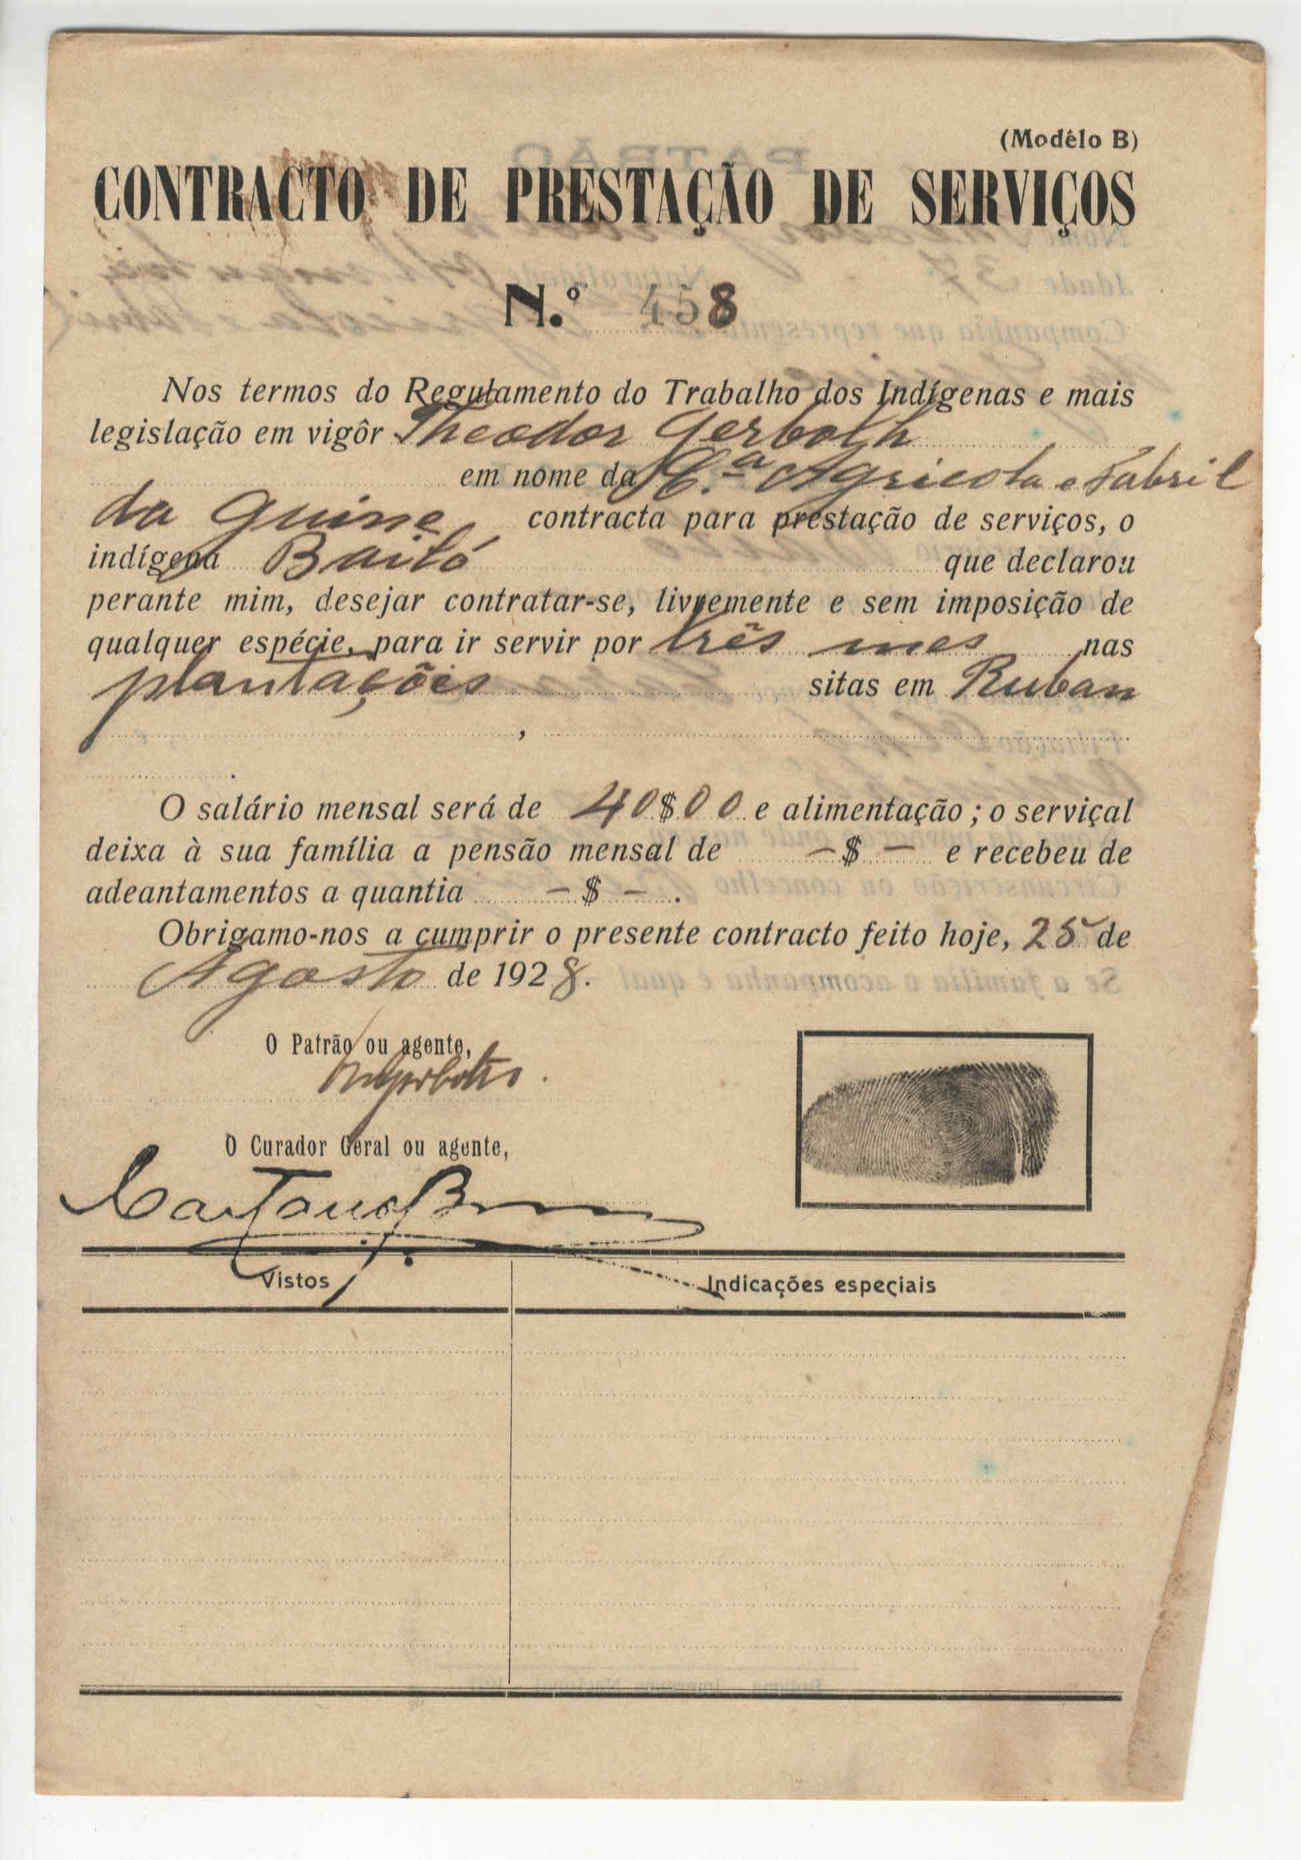 (Modêlo B)
CONTRACTO DE PRESTAÇÃO DE SERVIÇOS
N.º 458
Nos termos do Regulamento do Trabalho dos Indígenas e mais
legislação em vigôr Theodor Gerbolh
em nome da C.ª Agricola e Fabril
da Guine contracta para prestação de serviços, o
indígena Bailó que declarou
perante mim, desejar contratar-se, livremente e sem imposição de
qualquer espécie, para ir servir por três mes nas
plantações sitas em Ruban
,
.
O salário mensal será de 40$00 e alimentação; o serviçal
deixa à sua família a pensão mensal de -$- e recebeu de
adeantamentos a quantia -$-.
Obrigamo-nos a cumprir o presente contracto feito hoje, 25 de
Agosto de 1928.
O Patrão ou agente,
O Curador Geral ou agente,
Vistos
Indicações especiais